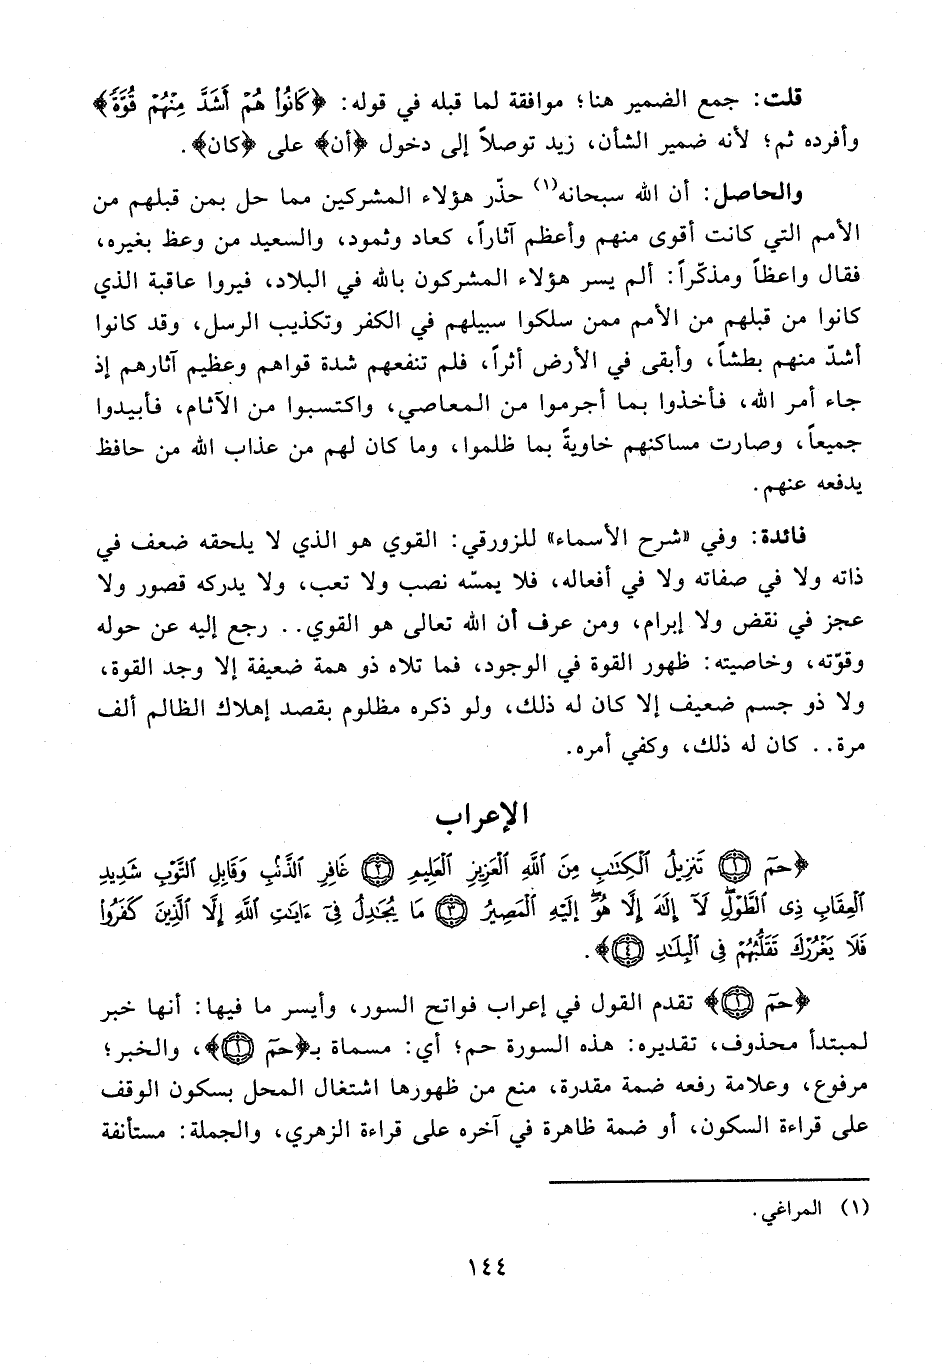 قلت: جمع الضمير هنا؛ موافقة لما قبله في قوله: ﴿كَانُوا۟ هُمْ أَشَدَّ مِنْهُمْ قُوَّةً﴾
وأفرده ثم؛ لأنه ضمير الشأن، زيد توصلاً إلى دخول ﴿أن﴾ على ﴿كان﴾.
والحاصل: أن الله سبحانه(١) حذّر هؤلاء المشركين مما حل بمن قبلهم من
الأمم التي كانت أقوى منهم وأعظم آثاراً، كعاد وثمود، والسعيد من وعظ بغيره،
فقال واعظاً ومذكّراً: ألم يسر هؤلاء المشركون بالله في البلاد، فيروا عاقبة الذي
كانوا من قبلهم من الأمم ممن سلكوا سبيلهم في الكفر وتكذيب الرسل، وقد كانوا
أشدّ منهم بطشاً، وأبقى في الأرض أثراً، فلم تنفعهم شدة قواهم وعظيم آثارهم إذ
جاء أمر الله، فأخذوا بما أجرموا من المعاصي، واكتسبوا من الآثام، فأبيدوا
جميعاً، وصارت مساكنهم خاويةً بما ظلموا، وما كان لهم من عذاب الله من حافظ
يدفعه عنهم.
فائدة: وفي «شرح الأسماء» للزورقي: القوي هو الذي لا يلحقه ضعف في
ذاته ولا في صفاته ولا في أفعاله، فلا يمسّه نصب ولا تعب، ولا يدركه قصور ولا
عجز في نقض ولا إبرام، ومن عرف أن الله تعالى هو القوي.. رجع إليه عن حوله
وقوّته، وخاصيته: ظهور القوة في الوجود، فما تلاه ذو همة ضعيفة إلا وجد القوة،
ولا ذو جسم ضعيف إلا كان له ذلك، ولو ذكره مظلوم بقصد إهلاك الظالم ألف
مرة.. كان له ذلك، وكفي أمره.
الإعراب
﴿حمٓ ۝١ تَنزِيلُ ٱلْكِتَٰبِ مِنَ ٱللَّهِ ٱلْعَزِيزِ ٱلْعَلِيمِ ۝٢ غَافِرِ ٱلذَّنۢبِ وَقَابِلِ ٱلتَّوْبِ شَدِيدِ
ٱلْعِقَابِ ذِى ٱلطَّوْلِ ۖ لَآ إِلَٰهَ إِلَّا هُوَ ۖ إِلَيْهِ ٱلْمَصِيرُ ۝٣ مَا يُجَٰدِلُ فِىٓ ءَايَٰتِ ٱللَّهِ إِلَّا ٱلَّذِينَ كَفَرُوا۟
فَلَا يَغْرُرْكَ تَقَلُّبُهُمْ فِى ٱلْبِلَٰدِ ۝٤﴾.
﴿حمٓ ۝١﴾ تقدم القول في إعراب فواتح السور، وأيسر ما فيها: أنها خبر
لمبتدأ محذوف، تقديره: هذه السورة حم؛ أي: مسماة بـ﴿حمٓ ۝١﴾، والخبر؛
مرفوع، وعلامة رفعه ضمة مقدرة، منع من ظهورها اشتغال المحل بسكون الوقف
على قراءة السكون، أو ضمة ظاهرة في آخره على قراءة الزهري، والجملة: مستأنفة
(١) المراغي.
١٤٤